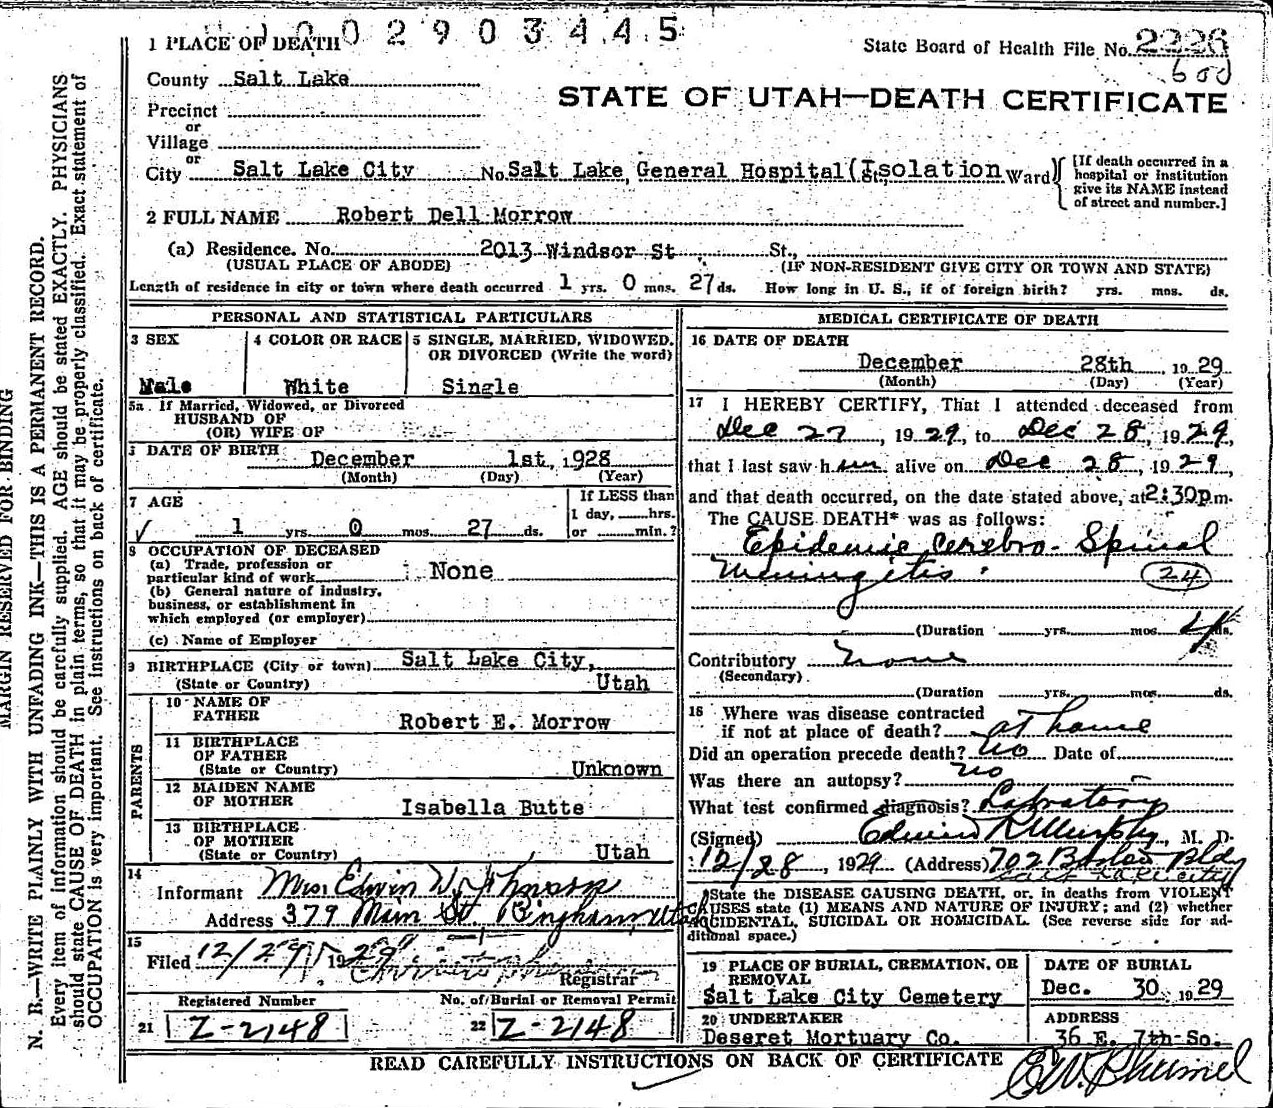 1 0 0 2 9 0 3 4 4 5
1 PLACE OF DEATH
State Board of Health File No. 2226
600
County Salt Lake
STATE OF UTAH—DEATH CERTIFICATE
Precinct
or
Village
or
City Salt Lake City No. Salt Lake General Hospital (St., Isolation Ward)
[If death occurred in a
hospital or institution
give its NAME instead
of street and number.]
2 FULL NAME Robert Dell Morrow
(a) Residence. No. 2013 Windsor St St.,
(USUAL PLACE OF ABODE) (IF NON-RESIDENT GIVE CITY OR TOWN AND STATE)
Length of residence in city or town where death occurred 1 yrs. 0 mos. 27 ds. How long in U. S., if of foreign birth? yrs. mos. ds.
PERSONAL AND STATISTICAL PARTICULARS
3 SEX
Male
4 COLOR OR RACE
White
5 SINGLE, MARRIED, WIDOWED,
OR DIVORCED (Write the word)
Single
5a If Married, Widowed, or Divorced
HUSBAND OF
(OR) WIFE OF
DATE OF BIRTH December 1st, 1928
(Month) (Day) (Year)
7 AGE
√ 1 yrs 0 mos. 27 ds.
If LESS than
1 day, hrs.
or min.?
8 OCCUPATION OF DECEASED
(a) Trade, profession or
particular kind of work None
(b) General nature of industry,
business, or establishment in
which employed (or employer)
(c) Name of Employer
9 BIRTHPLACE (City or town) Salt Lake City,
(State or Country) Utah
PARENTS
10 NAME OF
FATHER Robert E. Morrow
11 BIRTHPLACE
OF FATHER
(State or Country) Unknown
12 MAIDEN NAME
OF MOTHER Isabella Butte
13 BIRTHPLACE
OF MOTHER
(State or Country) Utah
14
Informant Mrs. Edwin W. Johnson
Address 379 Main St. Bingham, Utah
15
Filed 12/29/ 1929
Registrar
Registered Number
21 Z-2148
No. of Burial or Removal Permit
22 Z-2148
MEDICAL CERTIFICATE OF DEATH
16 DATE OF DEATH
December 28th, 1929
(Month) (Day) (Year)
17 I HEREBY CERTIFY, That I attended deceased from
Dec 27, 1929, to Dec 28, 1929,
that I last saw him alive on Dec 28, 1929,
and that death occurred, on the date stated above, at 2:30pm.
The CAUSE DEATH* was as follows:
Epidemic Cerebro-Spinal
Meningitis. 24
(Duration yrs. mos. 4 ds.
Contributory none
(Secondary)
(Duration yrs. mos. ds.
18 Where was disease contracted
if not at place of death? at home
Did an operation precede death? no Date of
Was there an autopsy? no
What test confirmed diagnosis? Labratory
(Signed) Edwin R Murphy, M. D.
12/28, 1929 (Address) 702 Boston Bldg
Salt Lake City
*State the DISEASE CAUSING DEATH, or, in deaths from VIOLENT
CAUSES state (1) MEANS AND NATURE OF INJURY; and (2) whether
ACCIDENTAL, SUICIDAL OR HOMICIDAL. (See reverse side for ad-
ditional space.)
19 PLACE OF BURIAL, CREMATION, OR
REMOVAL
Salt Lake City Cemetery
DATE OF BURIAL
Dec. 30, 1929
20 UNDERTAKER
Deseret Mortuary Co.
ADDRESS
36 E. 7th-So.
READ CAREFULLY INSTRUCTIONS ON BACK OF CERTIFICATE
MARGIN RESERVED FOR BINDING
N. B.—WRITE PLAINLY WITH UNFADING INK—THIS IS A PERMANENT RECORD.
Every item of information should be carefully supplied. AGE should be stated EXACTLY. PHYSICIANS
should state CAUSE OF DEATH in plain terms, so that it may be properly classified. Exact statement of
OCCUPATION is very important. See instructions on back of certificate.